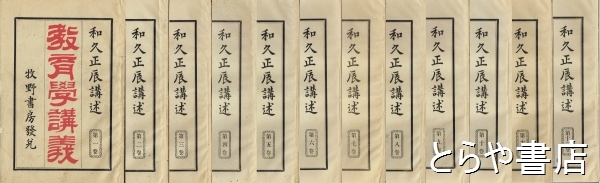 和久正辰講述
教育學講義
牧野書房發兌
第一巻
和久正辰講述
第二巻
和久正辰講述
第三巻
和久正辰講述
第四巻
和久正辰講述
第五巻
和久正辰講述
第六巻
和久正辰講述
第七巻
和久正辰講述
第八巻
和久正辰講述
和久正辰講述
第十巻
和久正辰講述
和久正辰講述
とらや書店